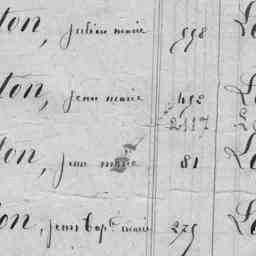 ton, julien marie 998
ton, jean marie 492
2117
ton, jean marie 81
ton, jean bap.te marie 279